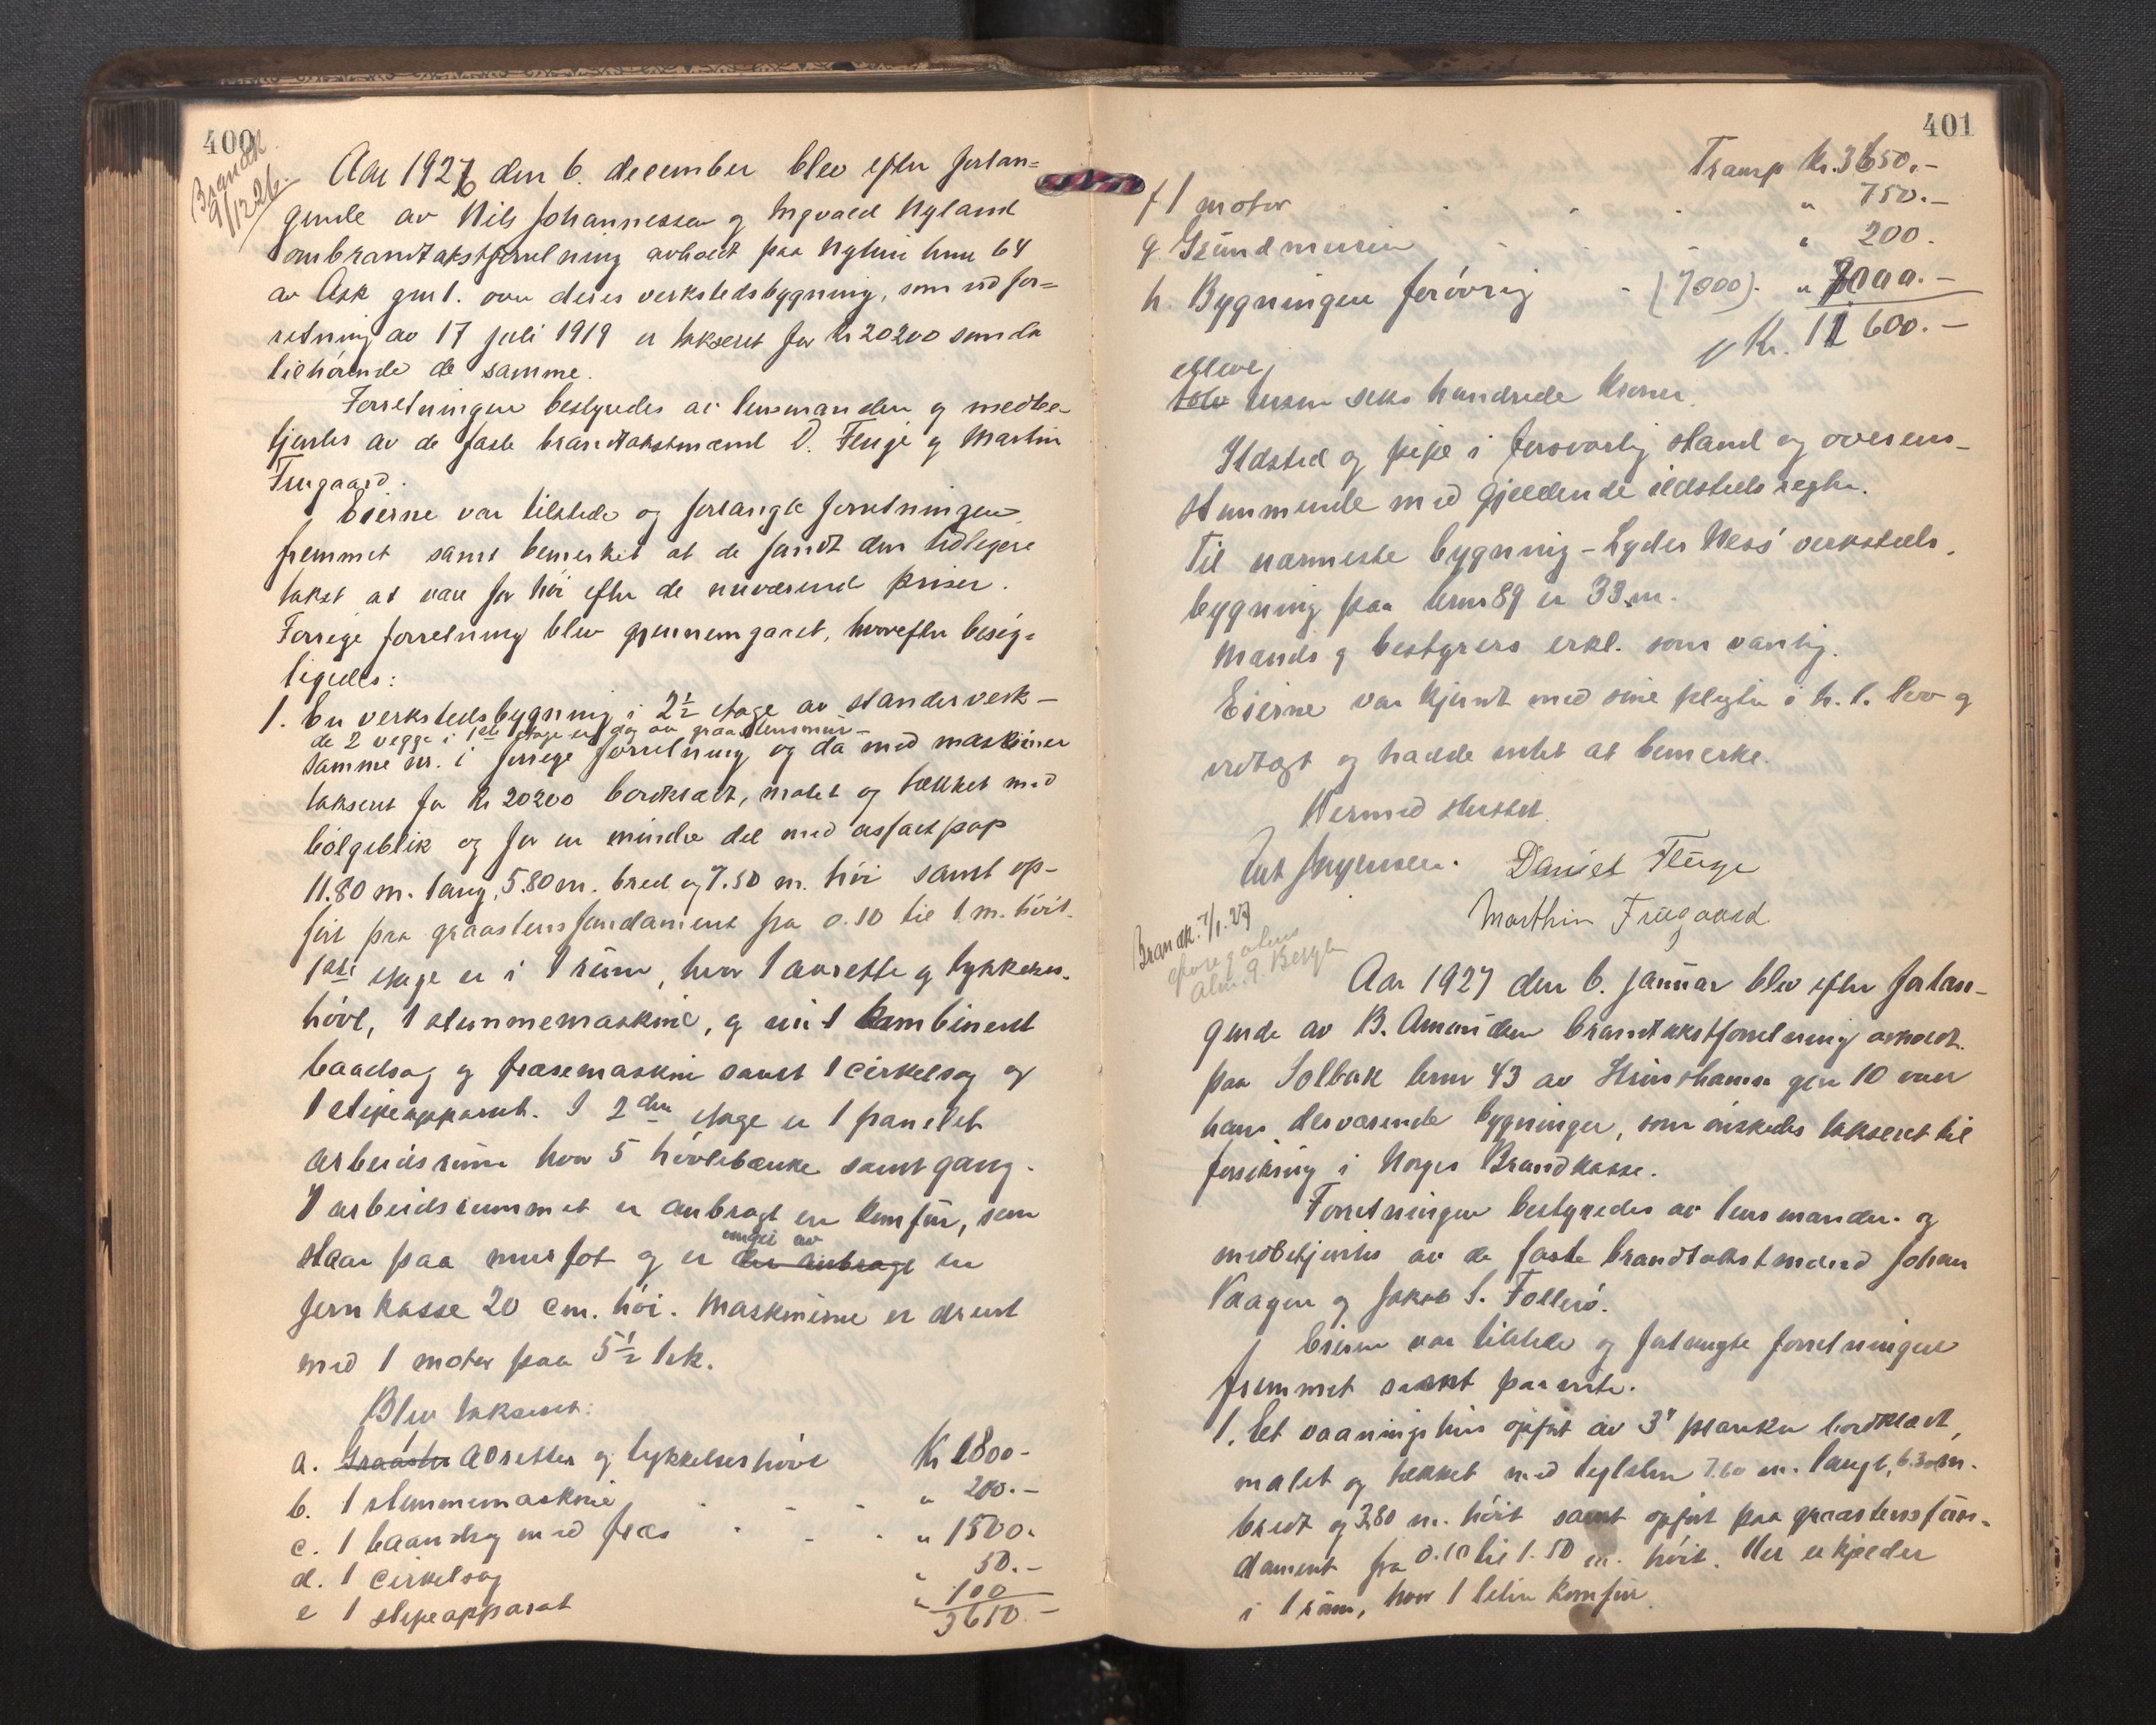 400
Brandk.
9/12 26.
Aar 1926 den 6. december blev efter forlan=
gende av Nils Johannessen og Ingvald Nyland
ombrandtakstforretning avholdt paa Nyheim bnr 64
av Ask gnr 1. over deres verkstedsbygning, som ved for=
retning av 17 juli 1919 er takseret for kr 20200 som da
tilhørende de samme.
Forretningen bestyredes av lensmanden og medbe-
tjentes av de faste brandtakstmænd D. Fluge og Martin
Frugaard.
Eierne var tilstede og forlangte forretningen
fremmet samt bemerket at de fandt den tidligere
takst at være for høi efter de nuværende priser.
Forrige forretning blev gjennemgaaet, hvorefter besig=
tigedes:
1. En verkstedsbygning i 2½ etage av standerverk -
de 2 vegge i 1ste etage er dog av graastensmur -
samme nr. i forrige forretning og da med maskiner
takseret for kr 20200 bordklædt, malet og tækket med
bølgeblik og for en mindre del med asfaltpap
11.80 m. lang, 5.80 m. bred og 7.50 m. høi samt op-
ført paa graastensfundament fra 0.10 til 1 m. høit.
1ste etage er i 1 rum, hvor 1 avretter og tykkelses-
høvl, 1 stemmemaskine, og 1 kombineret
baandsag og fræsemaskin samt 1 cirkelsag og
1 slipeapparat. I 2den etage er 1 panelet
arbeidsrum hvor 5 høvlebænke samt gang.
I arbeidsrummet er anbragt en komfur, som
staar paa mursfot og er der anbragt en
omgit av
jernkasse 20 cm. høi. Maskinerne er drevet
med 1 motor paa 5½ hk.
Blev takseret:
a. Graasten Avretter og tykkelseshøvl Kr 1800-
b. 1 stemmemaskine - - - " 200.-
c. 1 baandsag med fræs - - - " 1500.
d. 1 cirkelsag " 50.-
e 1 slipeapparat " 100
3650.-
401
Transp kr. 3650.-
f 1 motor - - - " 750.-
g. Grundmuren - - " 200.
h. Bygningen forøvrig - (7000). " 7000.-
Kr. 11 600.-
elleve
tolv tusen seks hundrede kroner.
Ildsted og pipe i forsvarlig stand og overens-
stemmende med gjældende ildstedsregler.
Til nærmeste bygning - Lyder Ness' verksteds-
bygning paa bnr 89 er 33 m.
Mænds og bestyrers erkl. som vanlig.
Eierne var kjendt med sine pligter i h. t. lov og
vedtægt og hadde intet at bemerke.
Dermed sluttet.
Daniel Fluge
Marthin Frugaard
Brandk. 7/1. 27
Aar 1927 den 6. januar blev efter forlan-
gende av B. Amundsen brandtakstforretning avholdt
paa Solbak bnr 43 av gnr 10 over
hans derværende bygninger, som ønskedes takseret til
forsikring i Norges Brandkasse.
Forretningen bestyredes av lensmanden og
medbetjentes av de faste brandtakstmænd Johan
Vaagen og Jakob S. Follesø.
Eieren var tilstede og forlangte forretningen
fremmet samt paaviste.
1. Et vaaningshus opført av 3" planker bordklædt,
malet og tækket med teglsten 7.60 m. langt, 6.30 m.
bredt og 3.80 m. høit samt opført paa graastensfun-
dament fra 0.10 til 1.50 m. høit. Der er kjælder
i 1 rum, hvor 1 liten komfur.